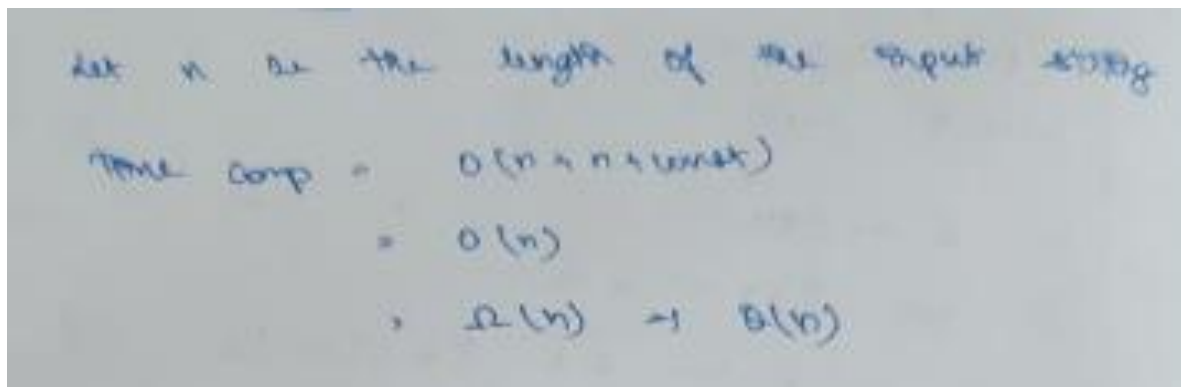 Let n be the length of the input string
Time comp = O(n + n + const)
= O(n)
= Ω(n) → θ(n)